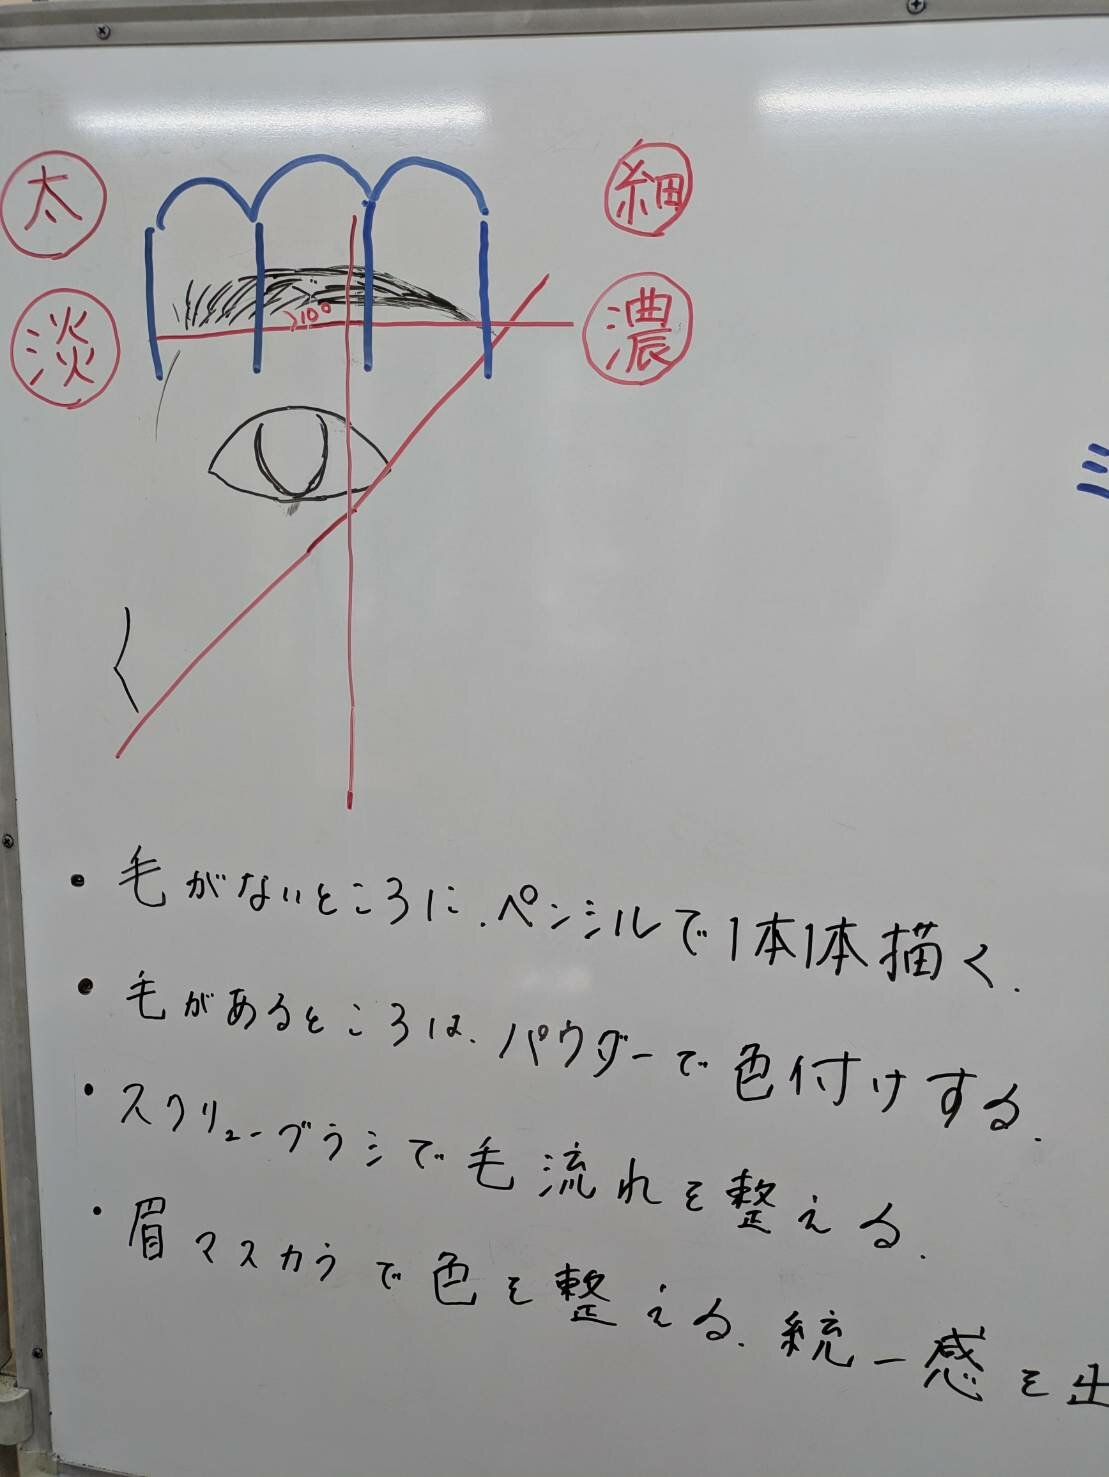 太
細
淡
濃
10°
・毛がないところに、ペンシルで1本1本描く.
・毛があるところは、パウダーで色付けする.
・スクリューブラシで毛流れを整える.
・眉マスカラで色を整える.統一感を出
ミ